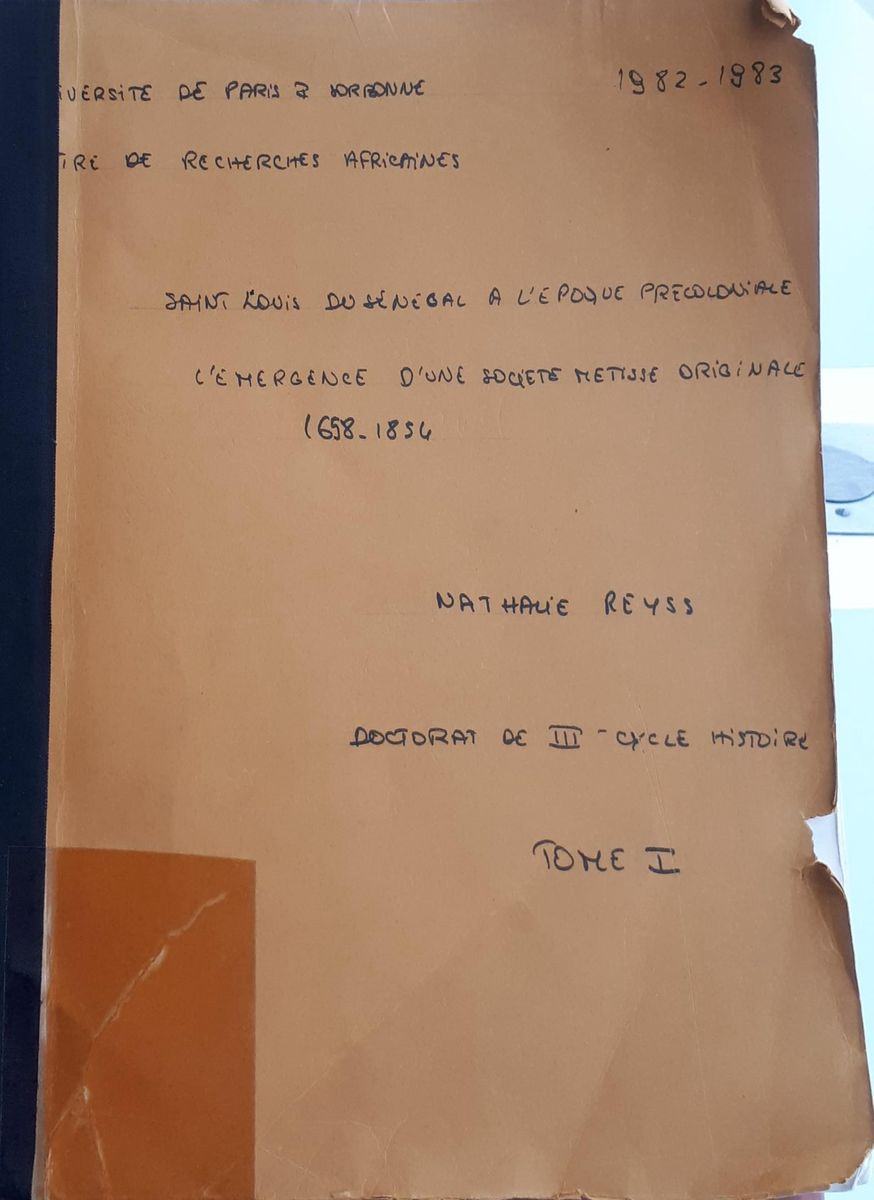 IVERSITE DE PARIS I SORBONNE
1982-1983
TRE DE RECHERCHES AFRICAINES
SAINT LOUIS DU SÉNÉGAL A L'EPOQUE PRECOLONIALE
L'EMERGENCE D'UNE SOCIETE METISSE ORIGINALE
1658-1854
NATHALIE REYSS
DOCTORAT DE III - CYCLE HISTOIRE
TOME I